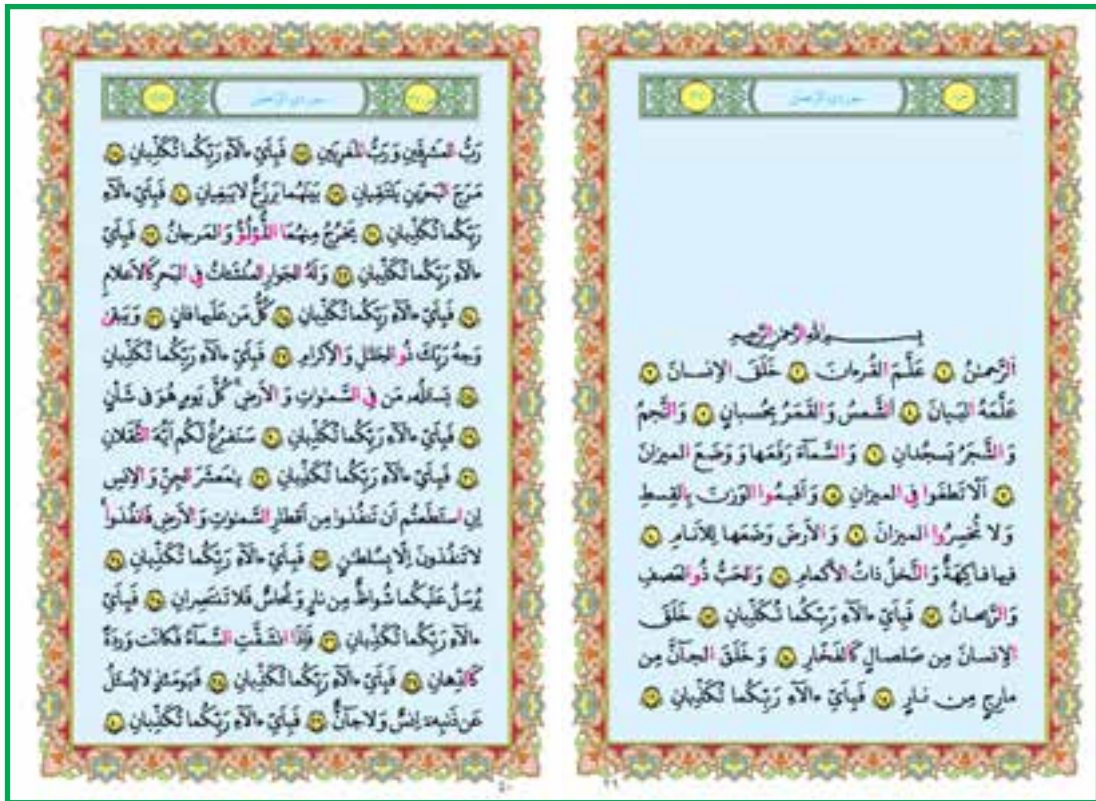 الرَّحمٰنُ
بِسمِ اللهِ الرَّحمٰنِ الرَّحيمِ
اَلرَّحمٰنُ عَلَّمَ القُرءانَ خَلَقَ الاِنسانَ
عَلَّمَهُ البَيانَ اَلشَّمسُ وَ القَمَرُ بِحُسبانٍ وَ النَّجمُ
وَ الشَّجَرُ يَسجُدانِ وَ السَّمآءَ رَفَعَها وَ وَضَعَ الميزانَ
اَلّا تَطغَوا فِي الميزانِ وَ اَقيمُوا الوَزنَ بِالقِسطِ
وَ لا تُخسِرُوا الميزانَ وَ الاَرضَ وَضَعَها لِلاَنامِ
فيها فاكِهَةٌ وَ النَّخلُ ذاتُ الاَكمامِ وَ الحَبُّ ذُو العَصفِ
وَ الرَّيحانُ فَبِاَيِّ ءالآءِ رَبِّكُما تُكَذِّبانِ خَلَقَ
الاِنسانَ مِن صَلصالٍ كَالفَخّارِ وَ خَلَقَ الجآنَّ مِن
مارِجٍ مِن نارٍ فَبِاَيِّ ءالآءِ رَبِّكُما تُكَذِّبانِ
الرَّحمٰنُ
رَبُّ المَشرِقَينِ وَ رَبُّ المَغرِبَينِ فَبِاَيِّ ءالآءِ رَبِّكُما تُكَذِّبانِ
مَرَجَ البَحرَينِ يَلتَقِيانِ بَينَهُما بَرزَخٌ لا يَبغِيانِ فَبِاَيِّ ءالآءِ
رَبِّكُما تُكَذِّبانِ يَخرُجُ مِنهُمَا اللُّؤلُؤُ وَ المَرجانُ فَبِاَيِّ
ءالآءِ رَبِّكُما تُكَذِّبانِ وَ لَهُ الجَوارِ المُنشَئاتُ فِي البَحرِ كَالاَعلامِ
فَبِاَيِّ ءالآءِ رَبِّكُما تُكَذِّبانِ كُلُّ مَن عَلَيها فانٍ وَ يَبقىٰ
وَجهُ رَبِّكَ ذُو الجَلالِ وَ الاِكرامِ فَبِاَيِّ ءالآءِ رَبِّكُما تُكَذِّبانِ
يَسئَلُهُ مَن فِي السَّمٰوٰتِ وَ الاَرضِ كُلَّ يَومٍ هُوَ في شَأنٍ
فَبِاَيِّ ءالآءِ رَبِّكُما تُكَذِّبانِ سَنَفرُغُ لَكُم اَيُّهَ الثَّقَلانِ
فَبِاَيِّ ءالآءِ رَبِّكُما تُكَذِّبانِ يٰمَعشَرَ الجِنِّ وَ الاِنسِ
اِنِ استَطَعتُم اَن تَنفُذوا مِن اَقطارِ السَّمٰوٰتِ وَ الاَرضِ فَانفُذوا
لا تَنفُذونَ اِلّا بِسُلطٰنٍ فَبِاَيِّ ءالآءِ رَبِّكُما تُكَذِّبانِ
يُرسَلُ عَلَيكُما شُواظٌ مِن نارٍ وَ نُحاسٌ فَلا تَنتَصِرانِ فَبِاَيِّ
ءالآءِ رَبِّكُما تُكَذِّبانِ فَاِذَا انشَقَّتِ السَّمآءُ فَكانَت وَردَةً
كَالدِّهانِ فَبِاَيِّ ءالآءِ رَبِّكُما تُكَذِّبانِ فَيَومَئِذٍ لا يُسئَلُ
عَن ذَنبِهٖ اِنسٌ وَ لا جآنٌّ فَبِاَيِّ ءالآءِ رَبِّكُما تُكَذِّبانِ